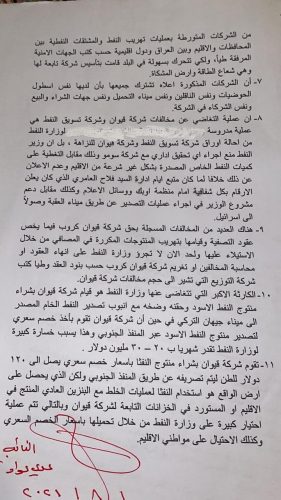 من الشركات المتورطة بعمليات تهريب النفط والمشتقات النفطية بين
المحافظات والاقليم وبين العراق ودول اقليمية حسب كتب الجهات الامنية
المرفقة طيا، ولكي تتحرك بسهولة في البلد قامت بتأسيس شركة تابعة لها
وهي شعاع الطاقة وارض المشكاة.
٧- أن الشركات المذكورة اعلاه تشترك جميعها بأن لديها نفس اسطول
الحوضيات ونفس الناقلين ونفس ميناء التحميل ونفس جهات الشراء والبيع
ونفس الشركاء في الشركة.
٨- إن عملية التغاضي عن مخالفات شركة قيوان وشركة تسويق هي
عملية مدروسة لوزارة النفط
من احالة اوراق شركة تسويق النفط وشركة قيوان للنزاهة ، بل ان وزير
النفط منع اجراء اي تحقيق اداري مع شركة سومو وذلك مقابل التغطية على
كميات النفط الخاص المصدرة بشكل غير شرعة من الاقليم وعدم الاعلان
عن ذلك خلافا لما كان متبع ايام ادارة السيد فلاح العامري الذي كان يعلن
الارقام بكل شفافية امام منظمة اوبك ووسائل الاعلام وكذلك مقابل دعم
مشروع الوزير في اجراء عمليات التصدير عن طريق ميناء العقبة وصولاً
الى اسرائيل.
٩- هناك العديد من المخالفات المسجلة بحق شركة قيوان كروب فيما يخص
عقود التصفية وقيامها بتهريب المنتوجات المكررة في المصافي من خلال
الاستيلاء عليها ولحد الان لا تجرؤ وزارة النفط على انهاء العقود او
محاسبة المخالفين او تغريم شركة قيوان كروب حسب بنود العقد وطيا كتب
شركة التوزيع التي تشير الى حجم مخالفات شركة قيوان.
١٠- الكارثة الاكبر التي تتغاضى عنها وزارة النفط هو قيام شركة قيوان بشراء
منتوج النفط الاسود وحقنه وضخه مع انبوب تصدير النفط الخام المصدر
الى ميناء جيهان التركي في حين أن شركة قيوان تقوم بأخذ خصم سعري
لتصدير منتوج النفط الاسود عبر المنفذ الجنوبي وهذا يسبب خسارة كبيرة
لوزارة النفط تقدر شهريا ب ٢٠ – ٣٠ مليون دولار.
١١- تقوم شركة قيوان بشراء منتوج النفثا بأسعار خصم سعري يصل الى ١٢٠
دولار للطن ليتم تصريفه عن طريق المنفذ الجنوبي ولكن الذي يحصل على
ارض الواقع هو استخدام النفثا لعمليات الخلط مع البنزين العادي المنتج في
الاقليم او المستورد في الخزانات التابعة لشركة قيوان وبالتالي تتم عملية
احتيار كبيرة على وزارة النفط من خلال تحميلها باسعار الخصم السعري
وكذلك الاحتيال على مواطني الاقليم.
النائب